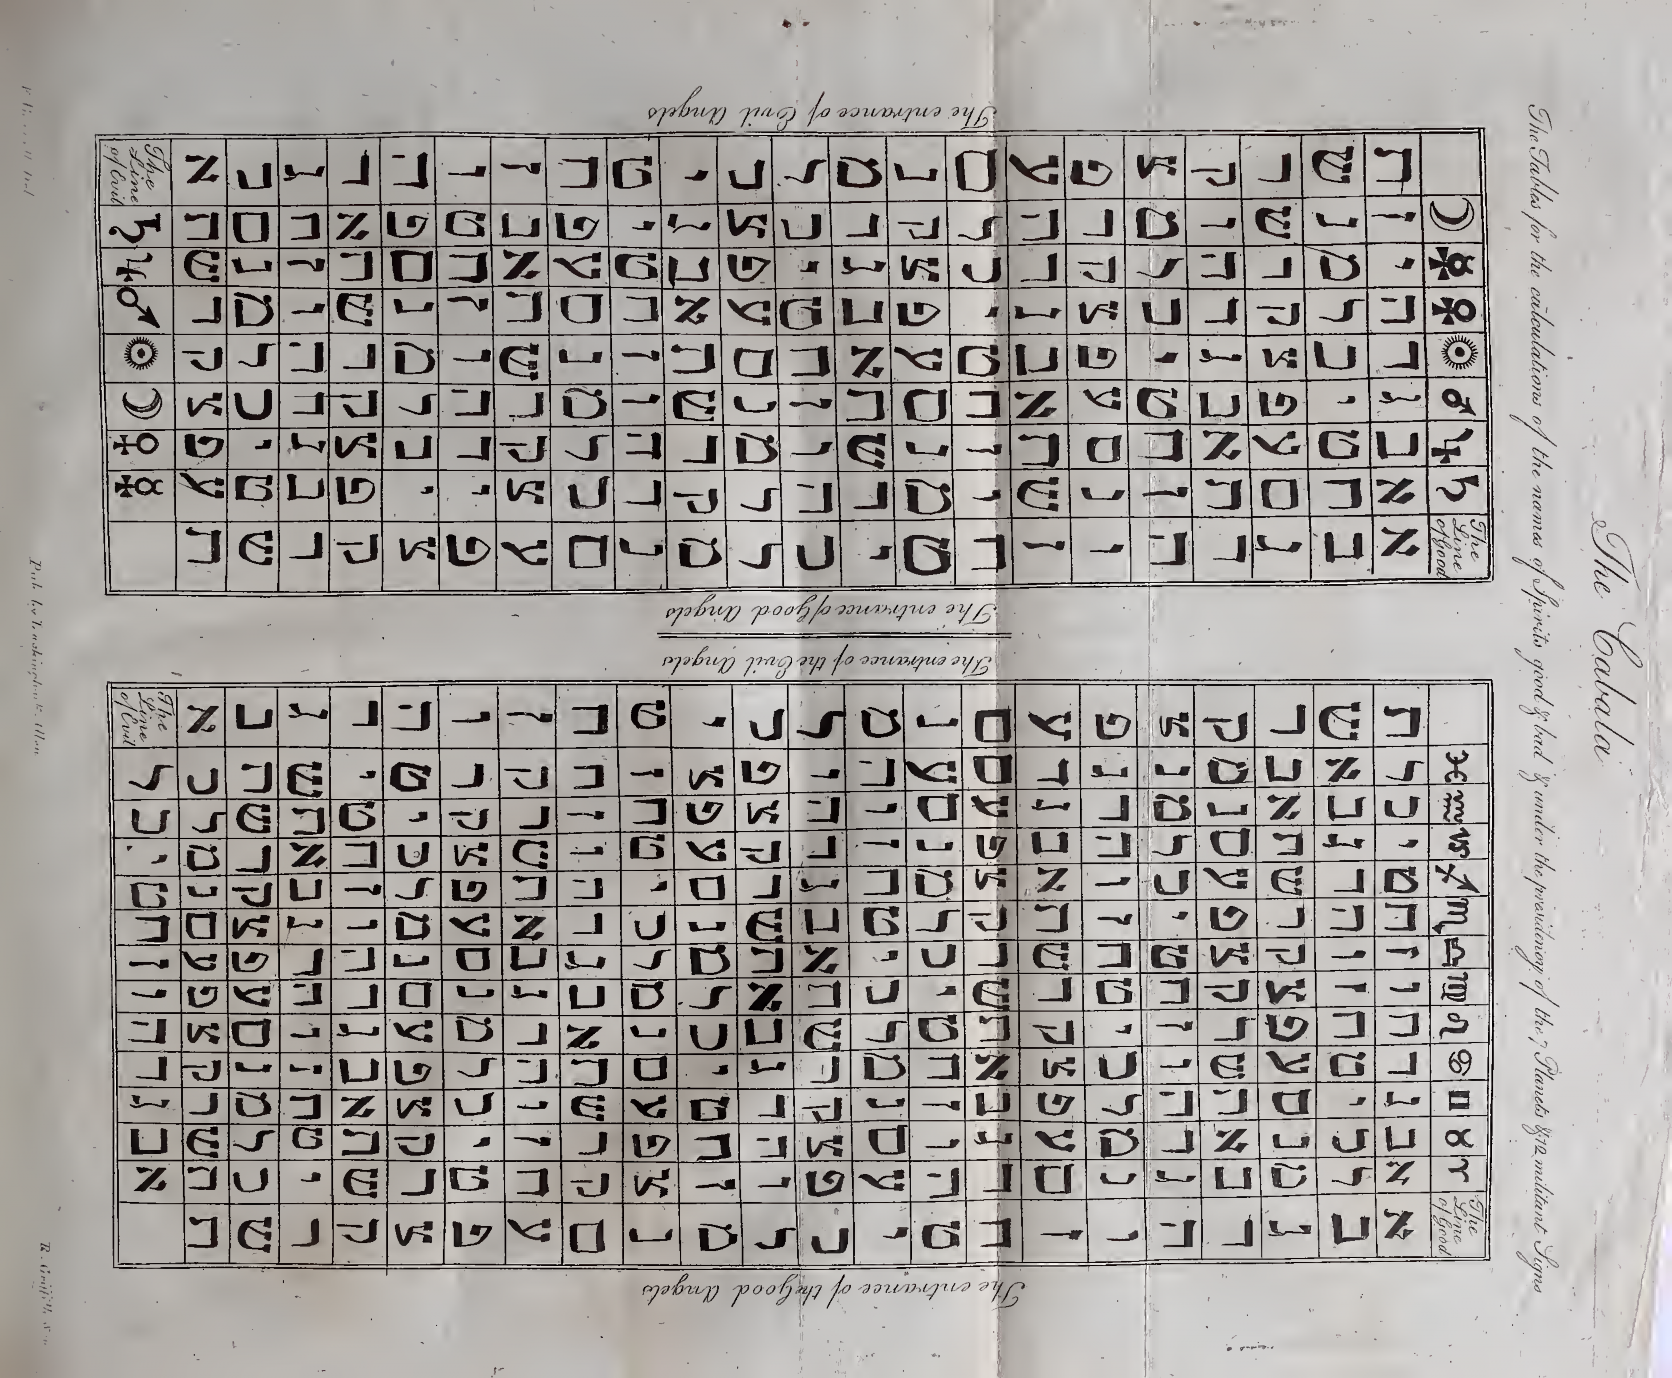 The Cabala
The Tables for the calculations of the names of Spirits good & bad & under the presidency of the 7 Planets & 12 militant Signs
The entrance of Evil Angels
ת ש ר ק צ פ ע ס נ מ ל כ י ט ח ז ו ה ד ג ב א The Line of Evil
☽ ז נ ש ו מ ר ה ל ק ד כ צ ג י פ ב ט ע א ח ס ת ♄
☿ ו מ ר ה ל ק ד כ צ ג י פ ב ט ע א ח ס ת ז נ ש ♃
♀ ה ל ק ד כ צ ג י פ ב ט ע א ח ס ת ז נ ש ו מ ר ♂
☉ ד כ צ ג י פ ב ט ע א ח ס ת ז נ ש ו מ ר ה ל ק ☉
♂ ג י פ ב ט ע א ח ס ת ז נ ש ו מ ר ה ל ק ד כ צ ☽
♃ ב ט ע א ח ס ת ז נ ש ו מ ר ה ל ק ד כ צ ג י פ ♀
♄ א ח ס ת ז נ ש ו מ ר ה ל ק ד כ צ ג י פ ב ט ע ☿
The Line of Good א ב ג ד ה ו ז ח ט י כ ל מ נ ס ע פ צ ק ר ש ת
The entrance of good Angels
The entrance of the Evil Angels
ת ש ר ק צ פ ע ס נ מ ל כ י ט ח ז ו ה ד ג ב א The Line of Evil
♓ ל א ב מ נ ג ד ס ע ה ו פ צ ז ח ק ר ט י ש ת כ ל
♒ כ ב א נ מ ד ג ע ס ו ה צ פ ח ז ר ק י ט ת ש ל כ
♑ י ג ת ס ל ה ב פ נ ז ד ק ע ט ו ש צ כ ח א ר מ י
♐ ט ד ש ע כ ו א צ מ ח ג ר ס י ה ת פ ל ז ב ק נ ט
♏ ח ה ר פ י ז ת ק ל ט ב ש נ כ ד א ע מ ו ג צ ס ח
♎ ז ו ק צ ט ח ש ר כ י א ת מ ל ג ב ס נ ה ד פ ע ז
♍ ו ז צ ק ח ט ר ש י כ ת א ל מ ב ג נ ס ד ה ע פ ו
♌ ה ח פ ר ז י ק ת ט ל ש ב כ נ א ד מ ע ג ו ס צ ה
♋ ד ט ע ש ו כ צ א ח מ ר ג י ס ת ה ל פ ב ז נ ק ד
♊ ג י ס ת ה ל פ ב ז נ ק ד ט ע ש ו כ צ א ח מ ר ג
♉ ב כ נ א ד מ ע ג ו ס צ ה ח פ ר ז י ק ת ט ל ש ב
♈ א ל מ ב ג נ ס ד ה ע פ ו ז צ ק ח ט ר ש י כ ת א
The Line of Good א ב ג ד ה ו ז ח ט י כ ל מ נ ס ע פ צ ק ר ש ת
The entrance of the Good Angels
Pub. by Lackington & Allen
R. Griffith